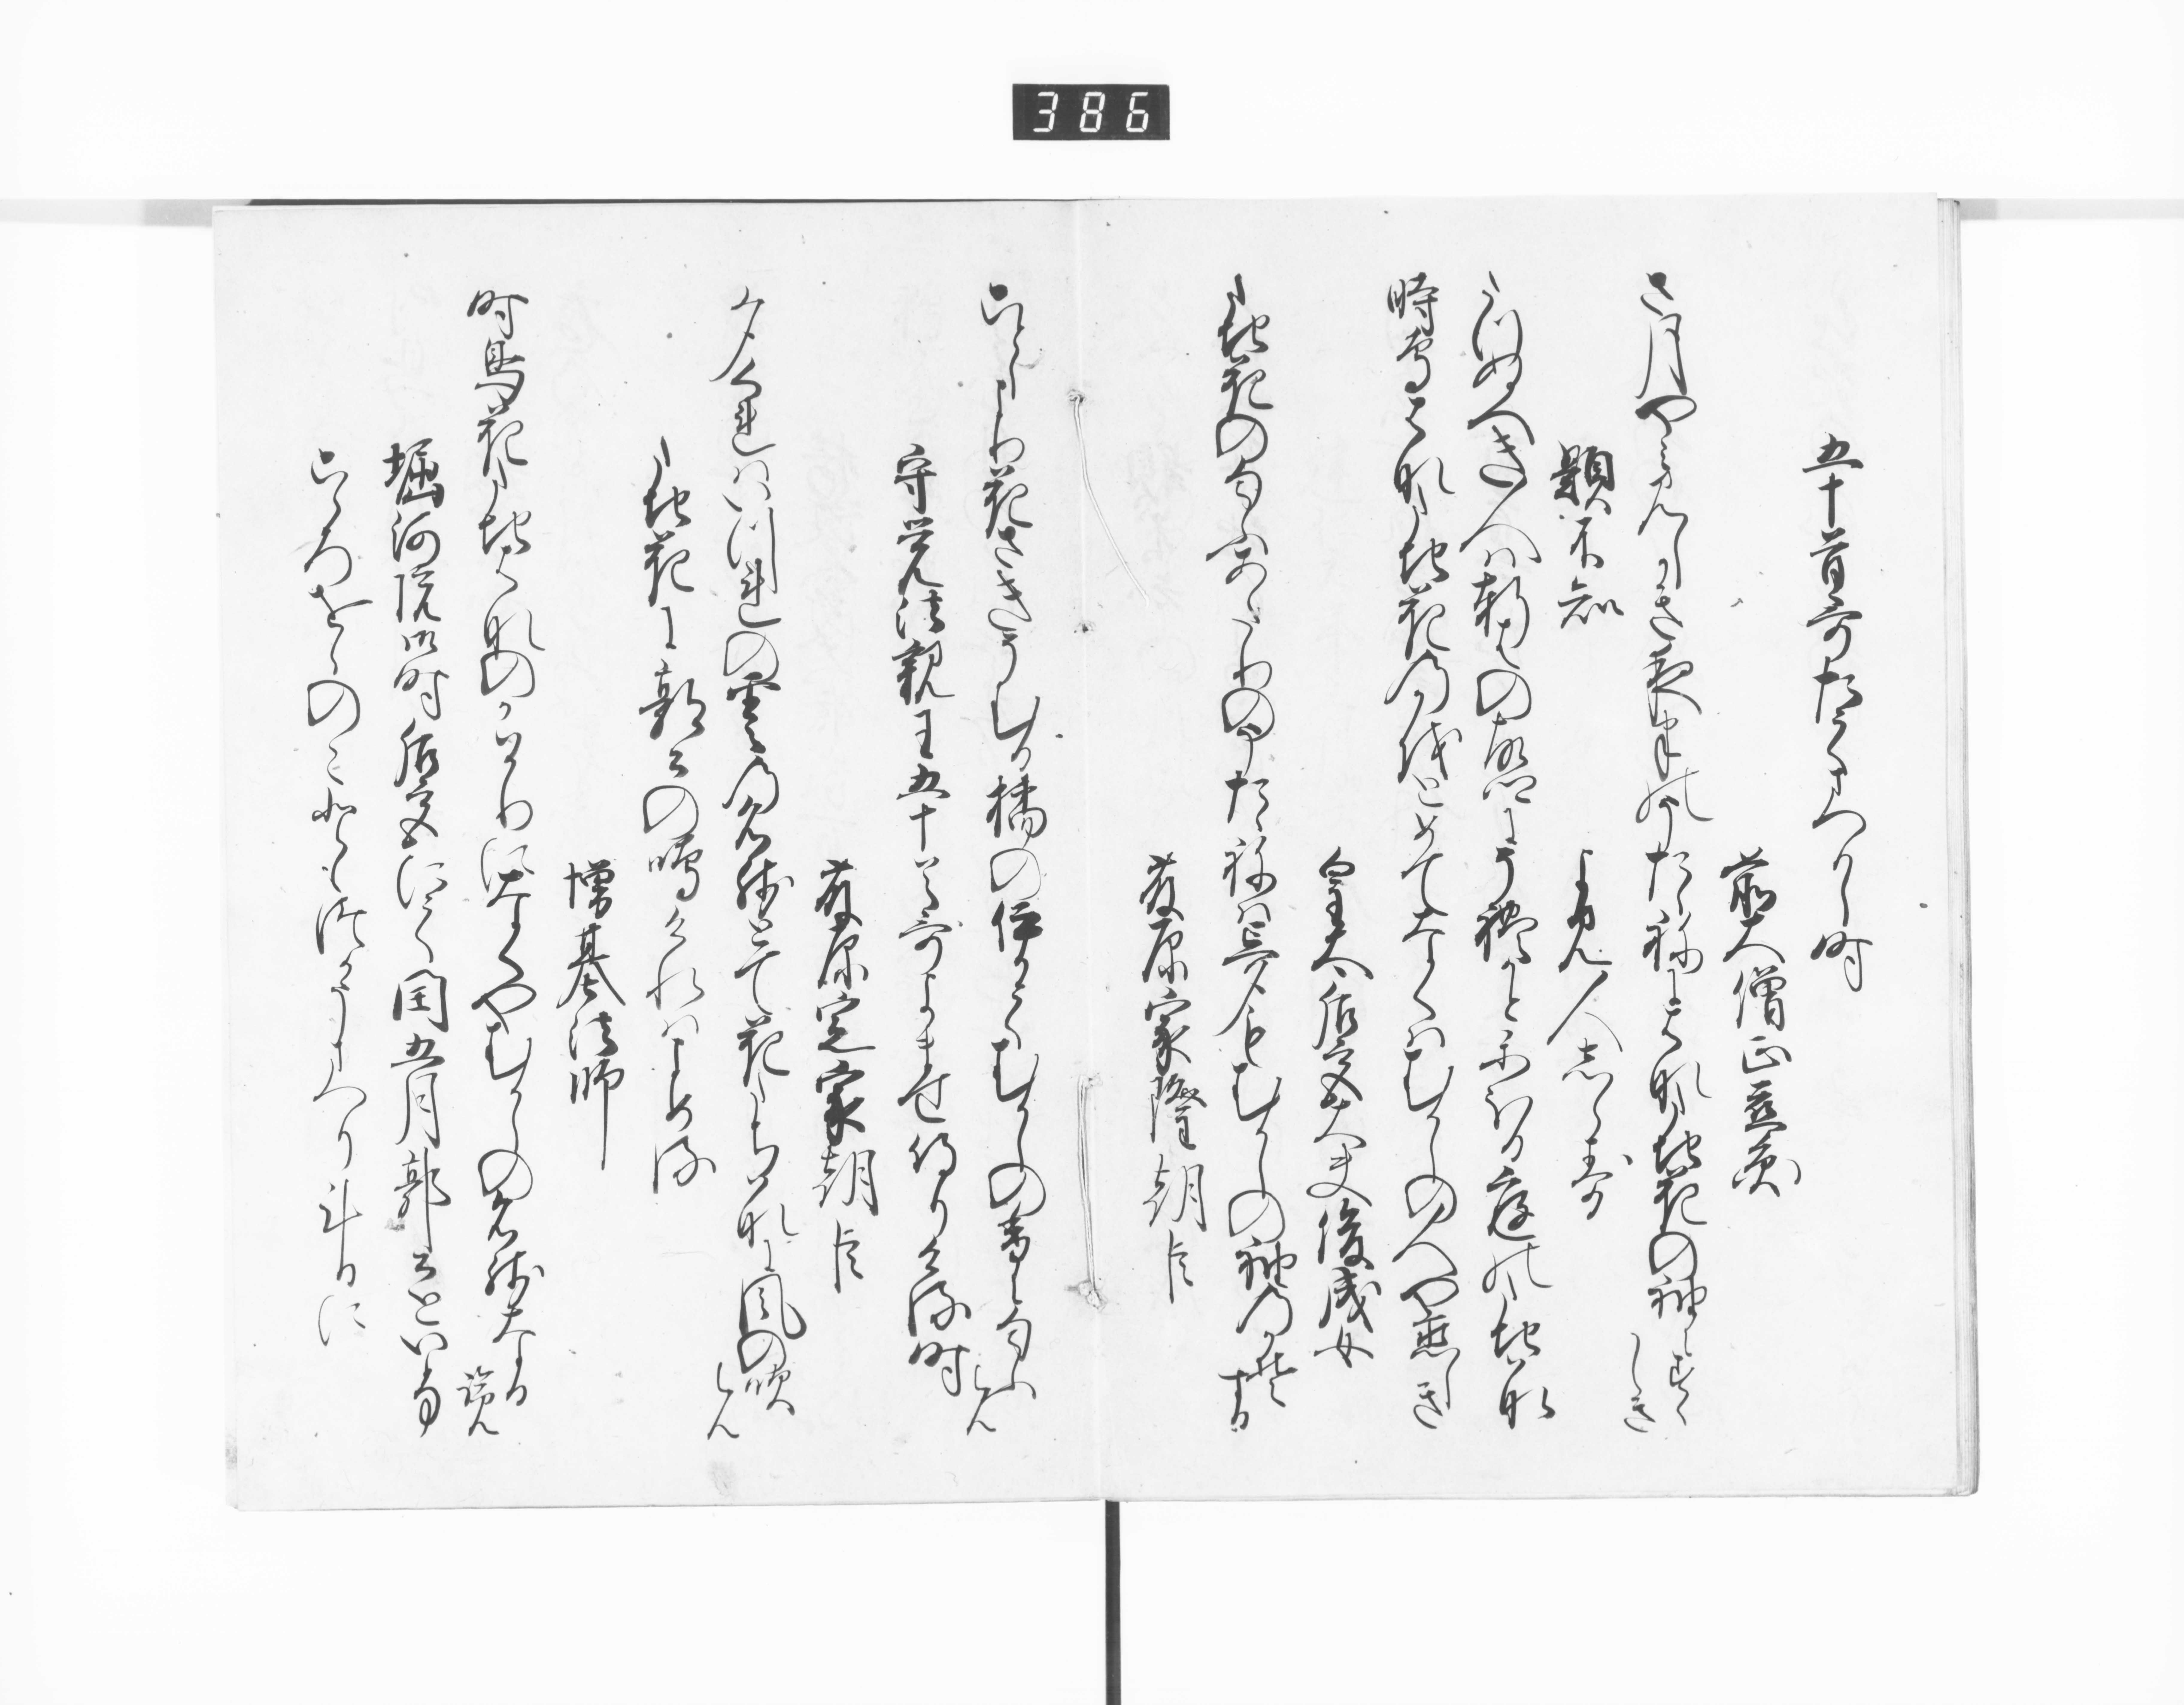 386
五十首哥たてまつりし時
前大僧正慈円
さ月やみみしかき夜半のうたたねにはなたち花の袖にすゝしき
題不知　よみ人しらす
たつぬへき人は軒はの故郷にそれかとかほる庭のたちはな
時鳥はなたち花の香をとめてなくはむかしの人や恋しき
皇太后宮大夫俊成女
たち花の匂ふあたりのうたたねは夢もむかしの袖の香そする
藤原家隆朝臣
ことしより花さきそむる橘のいかてむかしの香に匂ふらん
守覚法親王五十首哥よませ侍りける時
藤原定家朝臣
夕くれはいつれの雲の名残とて花たちはなに風の吹らん
たち花に郭公の鳴けれはよめる
増基法師
時鳥花たちはなのかはかりになくやむかしの名残なる覧
堀河院御時后宮にて閏五月郭公といふ事
こゝろををのこともつかうまつり斗るに